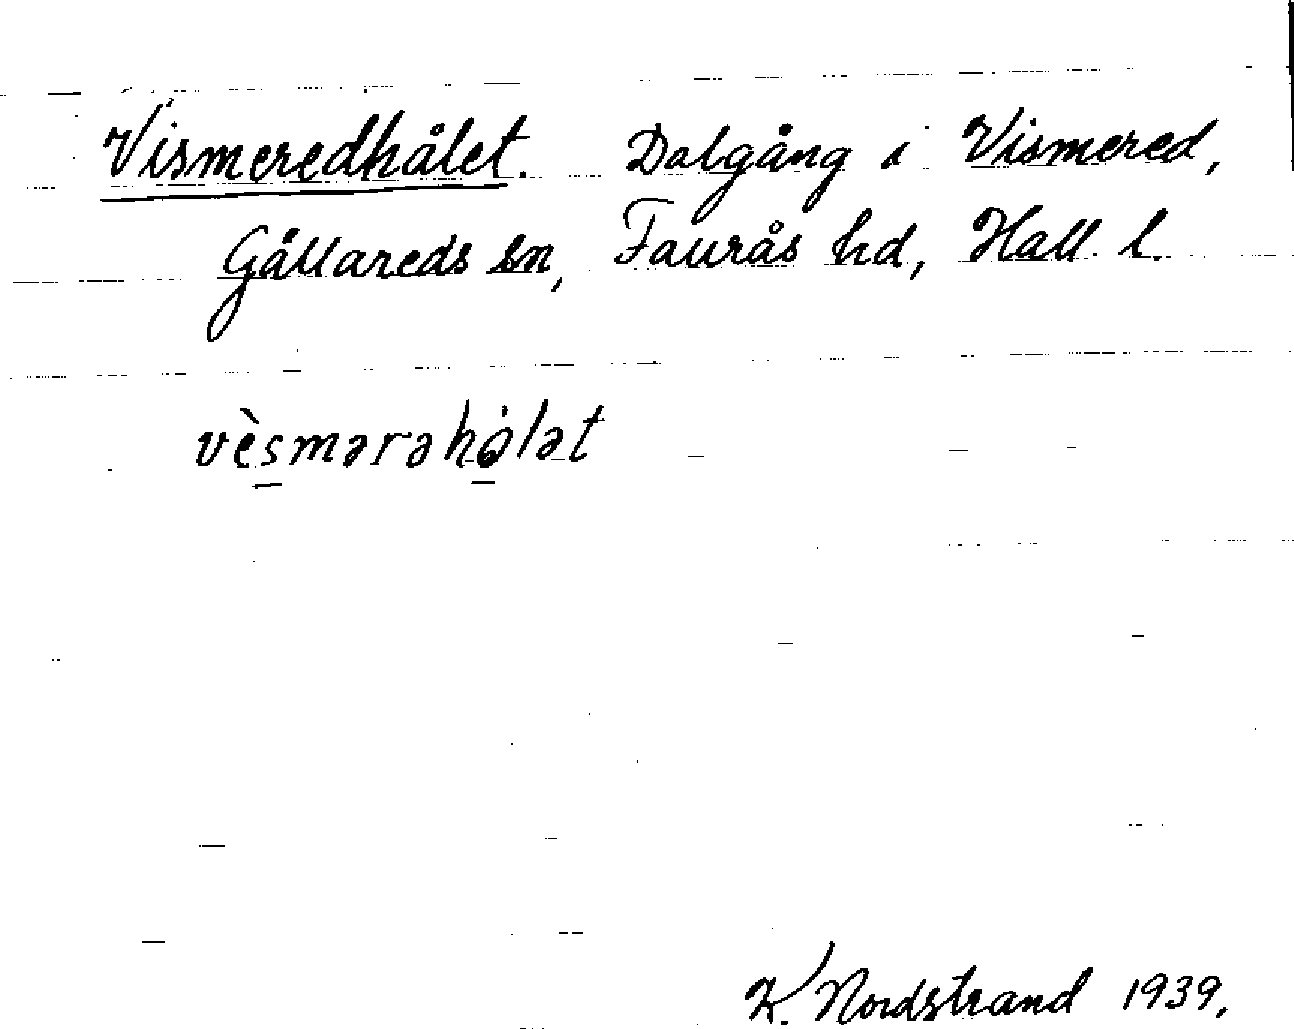 Vismeredhålet. Dalgång i Vismered,
Gällareds sn, Faurås hd, Hall. l.
vèsmərəhólət
K. Nordstrand 1939.